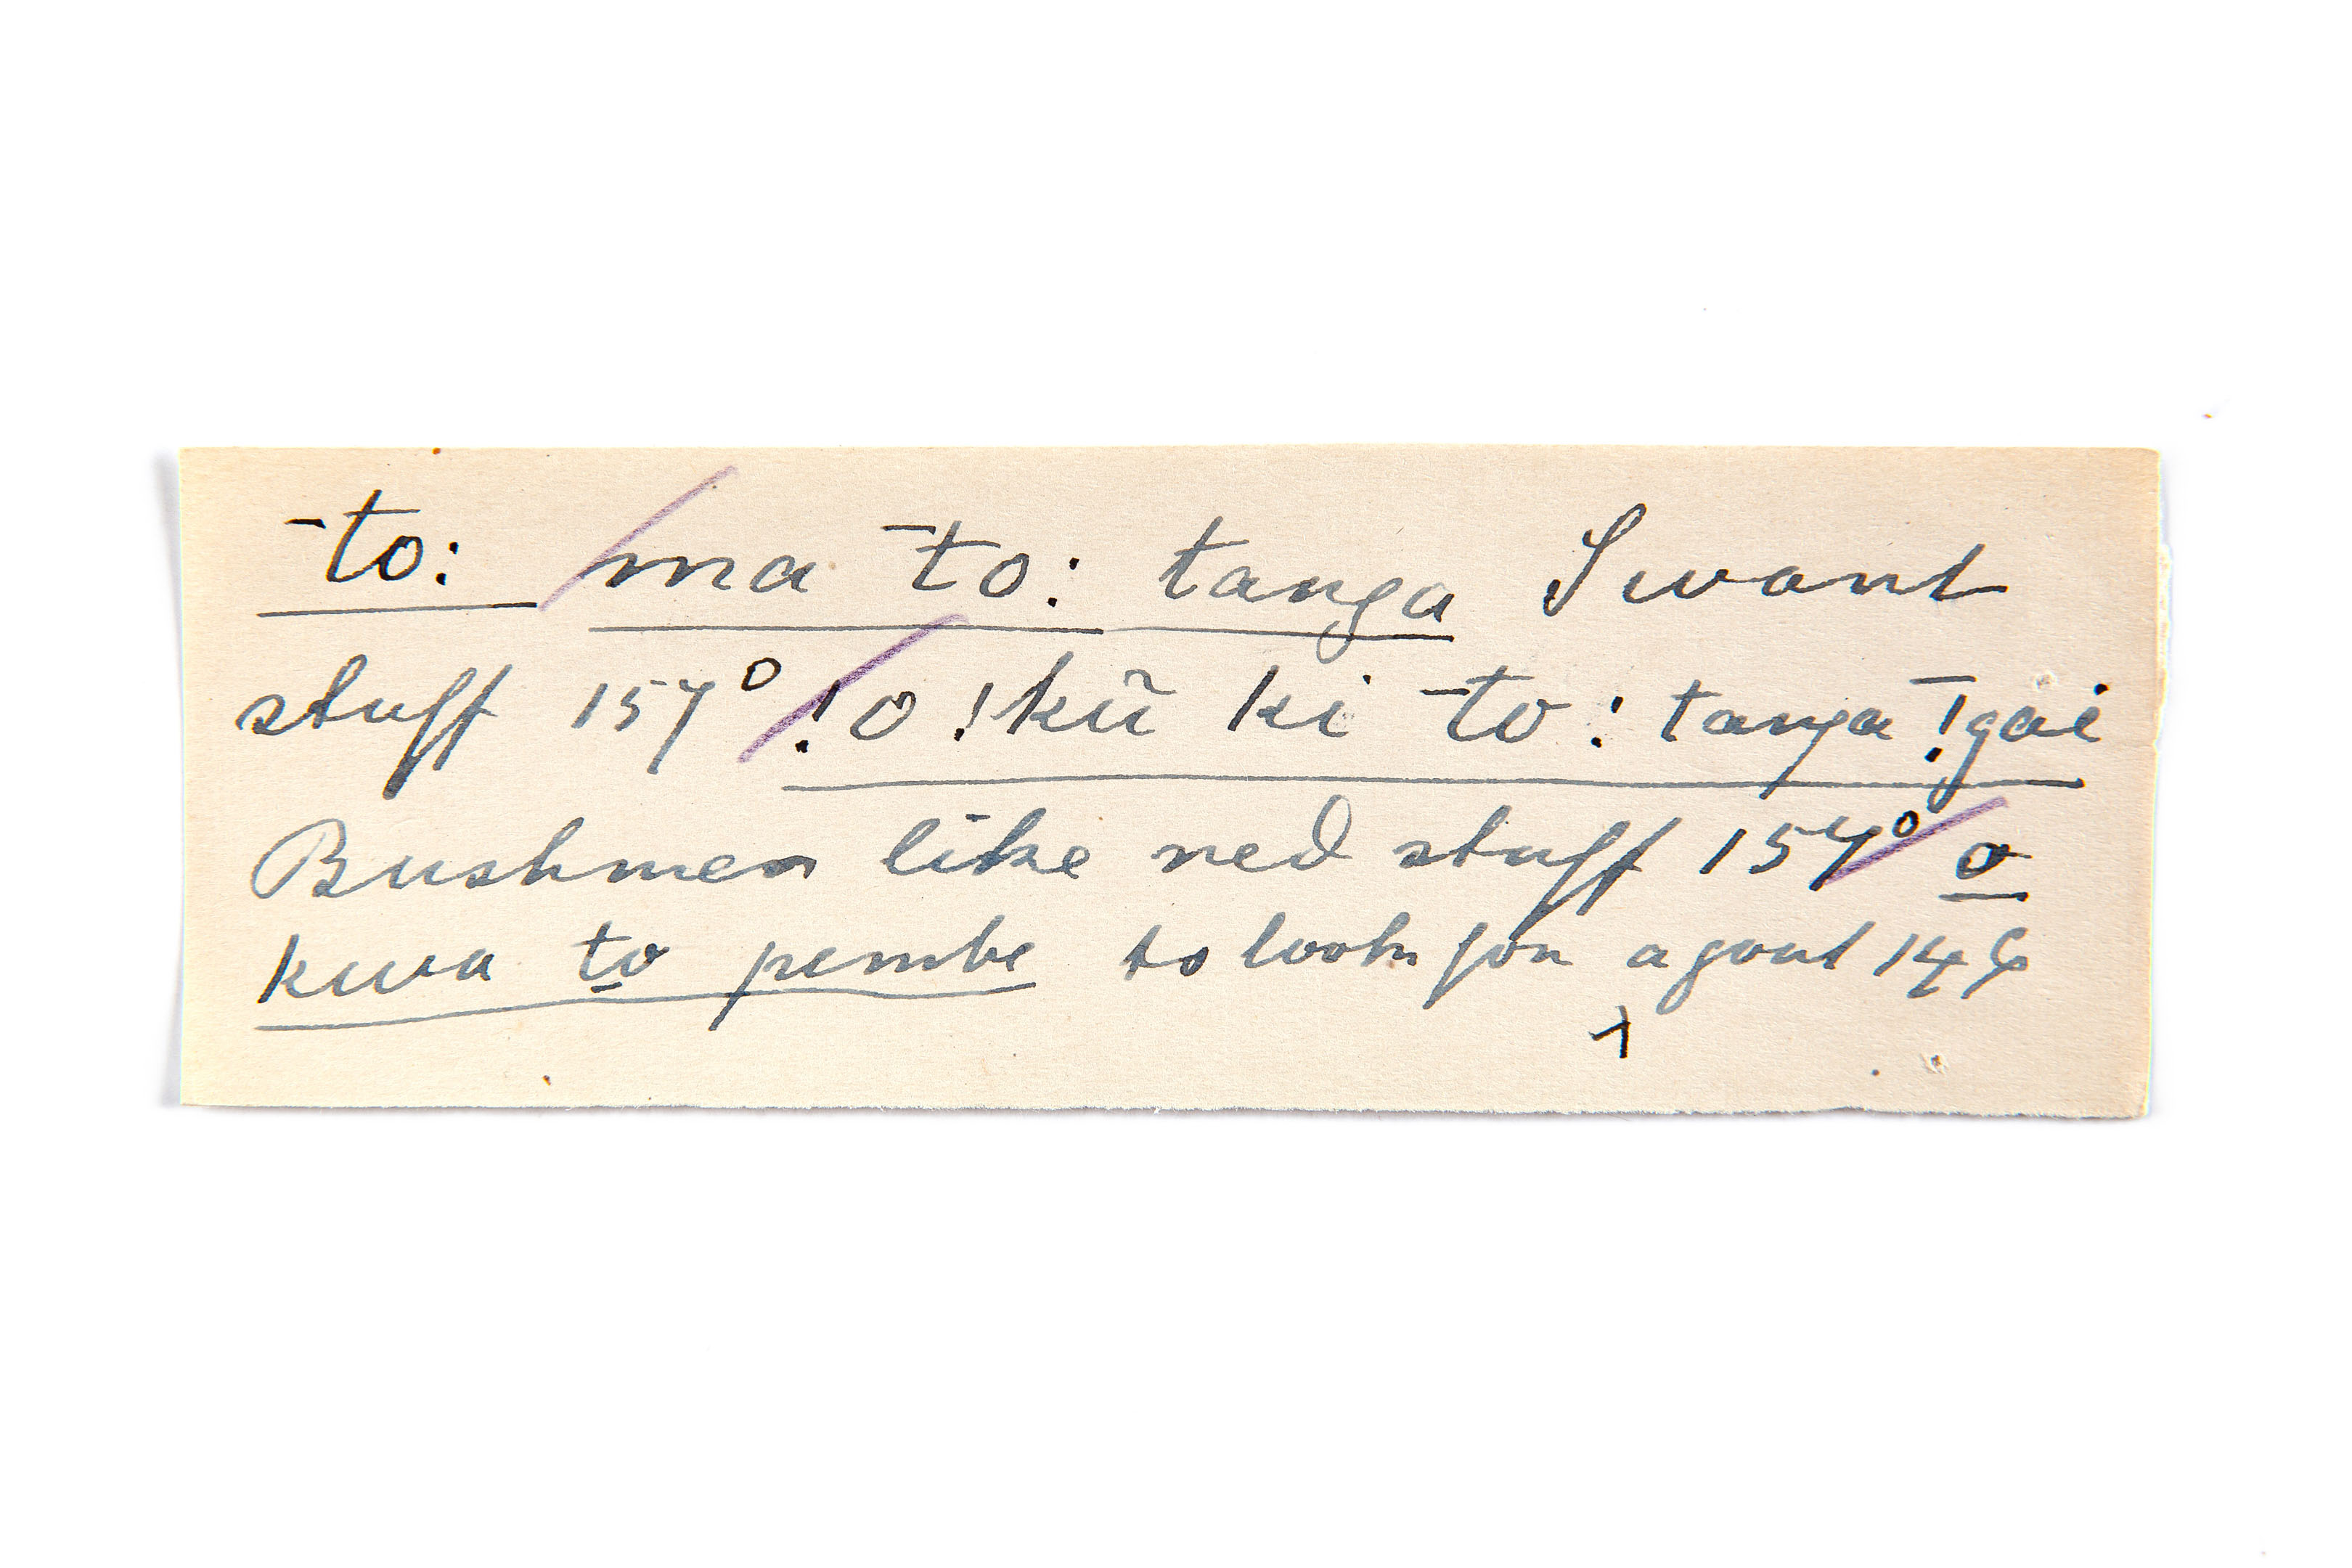 ¯to: ma ¯to: tanga I want
stuff 157° !o !kũ ki ¯to: tanga ¯!gai
Bushmen like red stuff 157° o
kwa to pembe to look for a gout 146